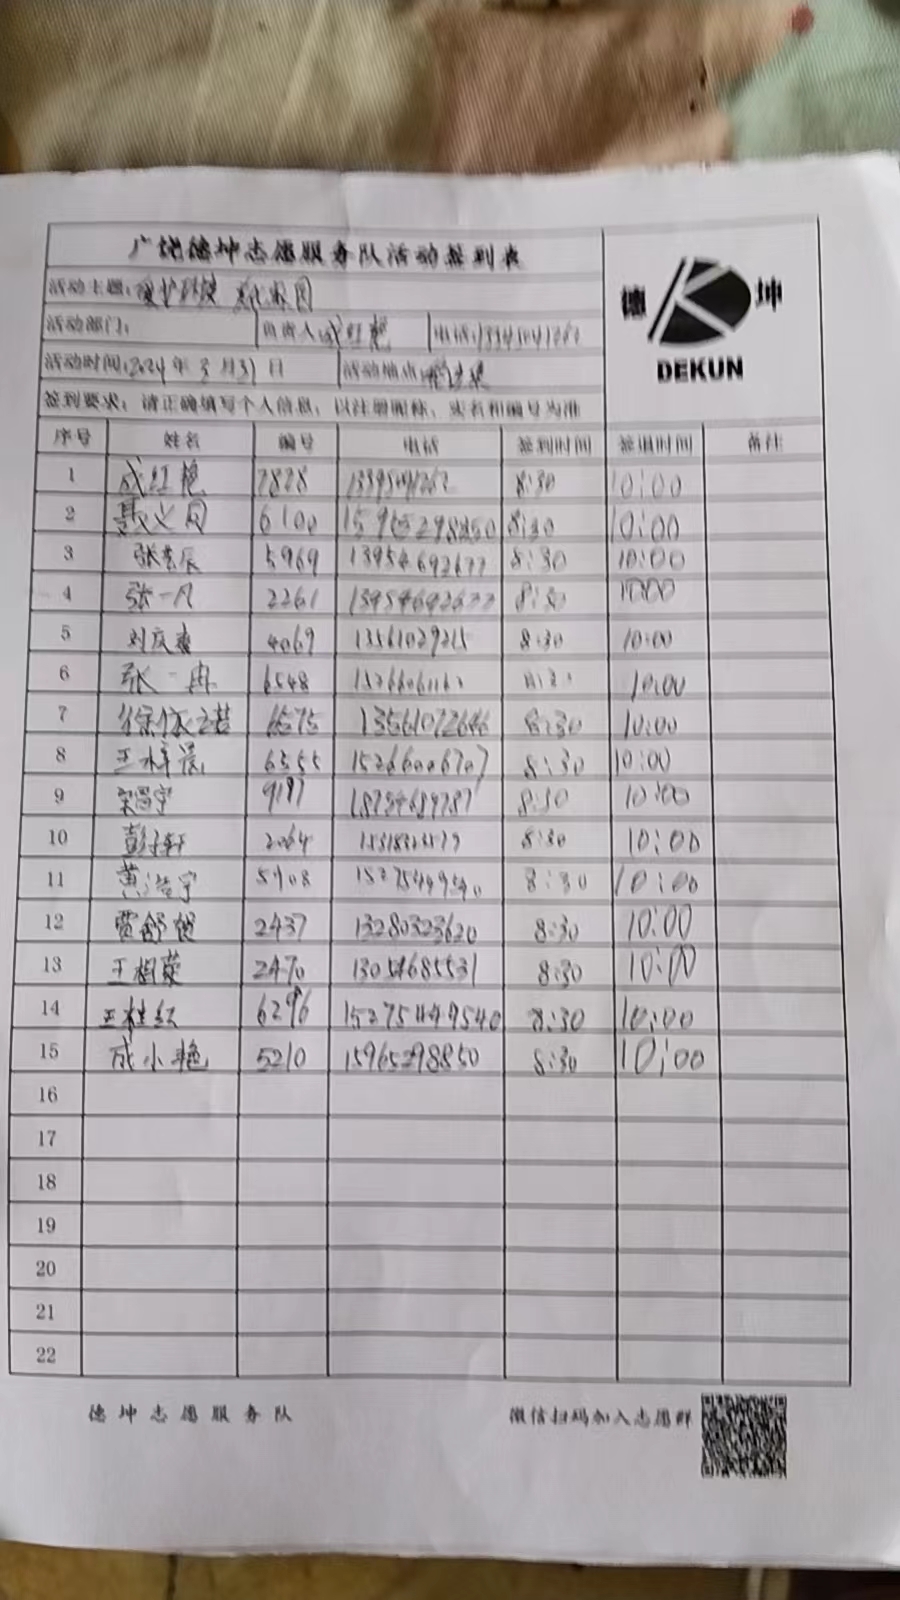 广饶德坤志愿服务队活动签到表
德 坤
DEKUN
活动主题: 爱护环境 美化家园
活动部门: 负责人 成红艳 电话:
活动时间:2024年3月31日 活动地点
签到要求: 请正确填写个人信息, 以注册昵称, 实名和编号为准
序号 姓名 编号 电话 签到时间 签退时间 备注
1 成红艳 7828 8:30 10:00
2 聂义网 6100 15965298850 8:30 10:00
3 张艺辰 5969 13954692677 8:30 10:00
4 张一凡 2261 13954692677 8:30 10:00
5 刘庆 4069 13561029215 8:30 10:00
6 张一冉 6548 10:00
7 徐依诺 6575 13561072646 8:30 10:00
8 王梓 6555 15266006707 8:30 10:00
9 宇 9197 18754689787 8:30 10:00
10 彭子轩 2064 8:30 10:00
11 黄浩宇 5908 15275449540 8:30 10:00
12 贾舒 2437 13280323620 8:30 10:00
13 王相荣 2470 13054685531 8:30 10:00
14 王桂红 6296 15275449540 8:30 10:00
15 成小艳 5210 15965298850 8:30 10:00
16
17
18
19
20
21
22
德坤志愿服务队 微信扫码加入志愿群